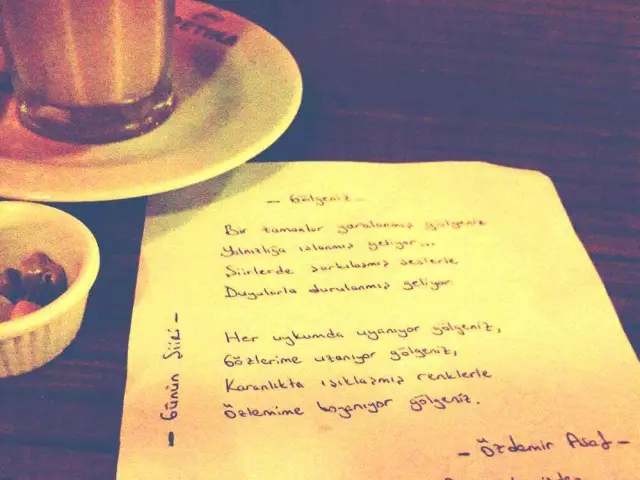 DETTNA
- Gölgeniz -
Bir zamanlar yaralanmış gölgeniz
Yalnızlığa ıslanmış geliyor...
Şiirlerde şarkılaşmış seslerle
Duygularla durulanmış geliyor.
Her uykumda uyanıyor gölgeniz,
Gözlerime uzanıyor gölgeniz,
Karanlıkta ışıklaşmış renklerle
Özlemime boyanıyor gölgeniz.
- Özdemir Asaf -
- Günün Şiiri -